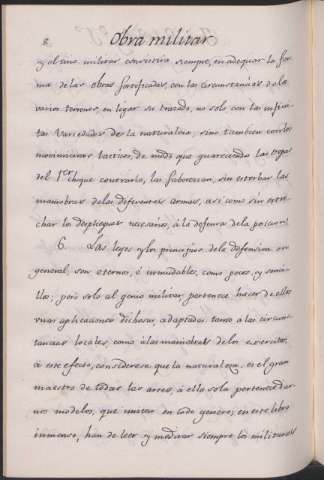 8. Obra militar
y al tino militar consistira siempre, en adequar la for
ma de las obras fortificadas, con las circunstancias de los
varios terrenos, en ligar su trazado, no solo con las infini
tas variedades de la naturaleza, sino tambien con los
movimientos tacticos, de modo que guareciendo las tropas
del 1.er choque contrario, las favorezcan, sin estorbar las
maniobras de las diferentes armas, asi como sin estre
char los despliegues necesarios, à la defensa de la posicion.
6. Las leyes y los principios de la defensiva en
general, son eternos, é inmudables, como pocos, y senci
llos; pero solo al genio militar pertenece hacer de ellos
unas aplicaciones dichosas, adaptadas, tanto, a las circuns
tancias locales, como à las maniobras de los exercitos,
à este efecto, considerese que la naturaleza, es el gran
maestro de todas las artes, à ella sola pertenece dar
nos modelos, que imitar en todo genero; en este libro
inmenso, han de leer y meditar siempre los militares